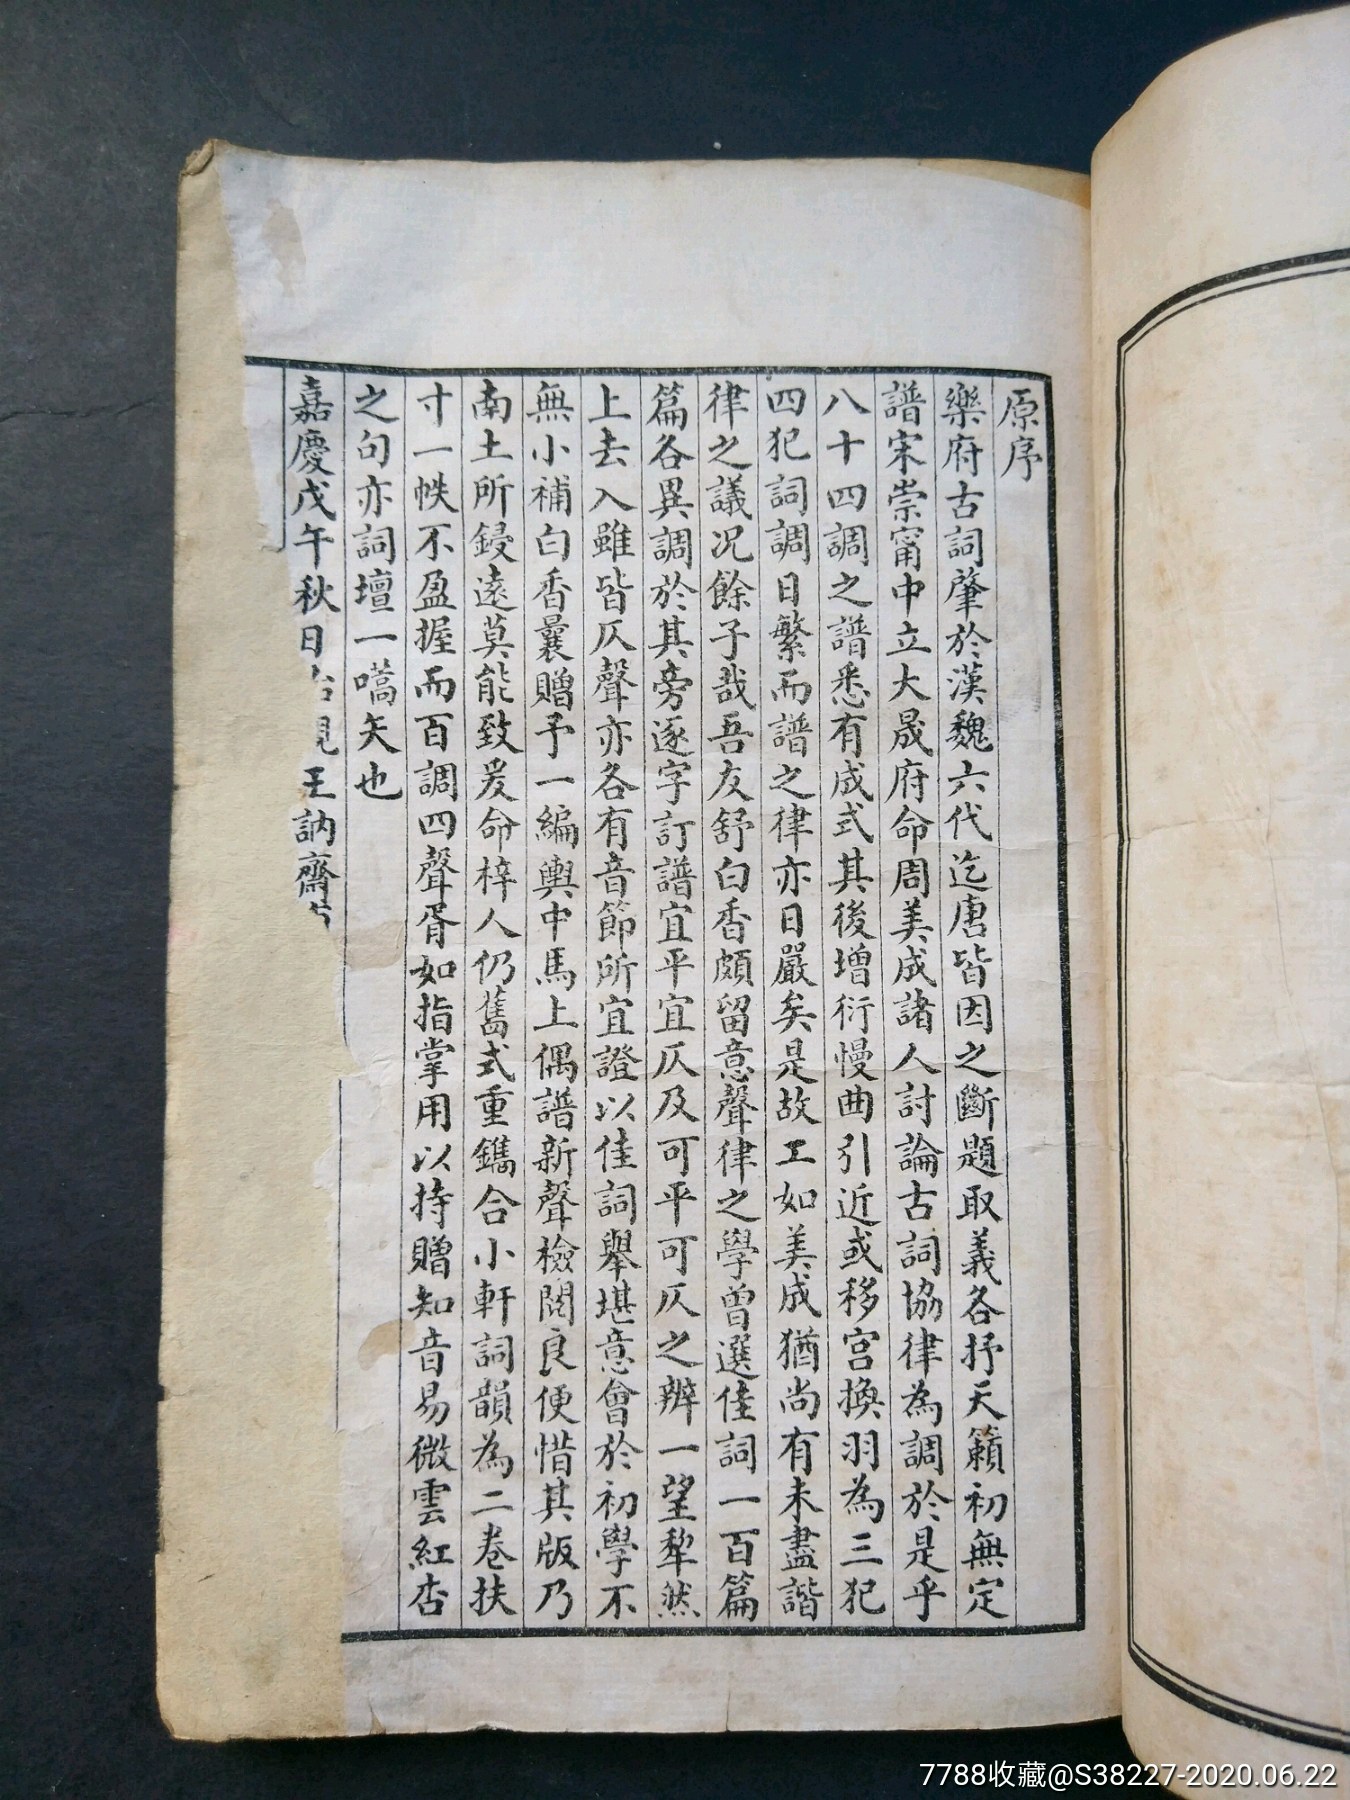 原序
樂府古詞肇於漢魏六代迄唐皆因之斷題取義各抒天籟初無定
譜宋崇甯中立大晟府命周美成諸人討論古詞協律為調於是乎
八十四調之譜悉有成式其後增衍慢曲引近或移宮換羽為三犯
四犯詞調日繁而譜之律亦日嚴矣是故工如美成猶尚有未盡諧
律之議况餘子哉吾友舒白香頗留意聲律之學曾選佳詞一百篇
篇各異調於其旁逐字訂譜宜平宜仄及可平可仄之辨一望犂然
上去入雖皆仄聲亦各有音節所宜證以佳詞舉堪意會於初學不
無小補白香曩贈予一編輿中馬上偶譜新聲檢閱良便惜其版乃
南土所鋟遠莫能致爰命梓人仍舊式重鐫合小軒詞韻為二卷扶
寸一帙不盈握而百調四聲胥如指掌用以持贈知音易微雲紅杏
之句亦詞壇一嚆矢也
嘉慶戊午秋日王訥齋
7788收藏@S38227-2020.06.22